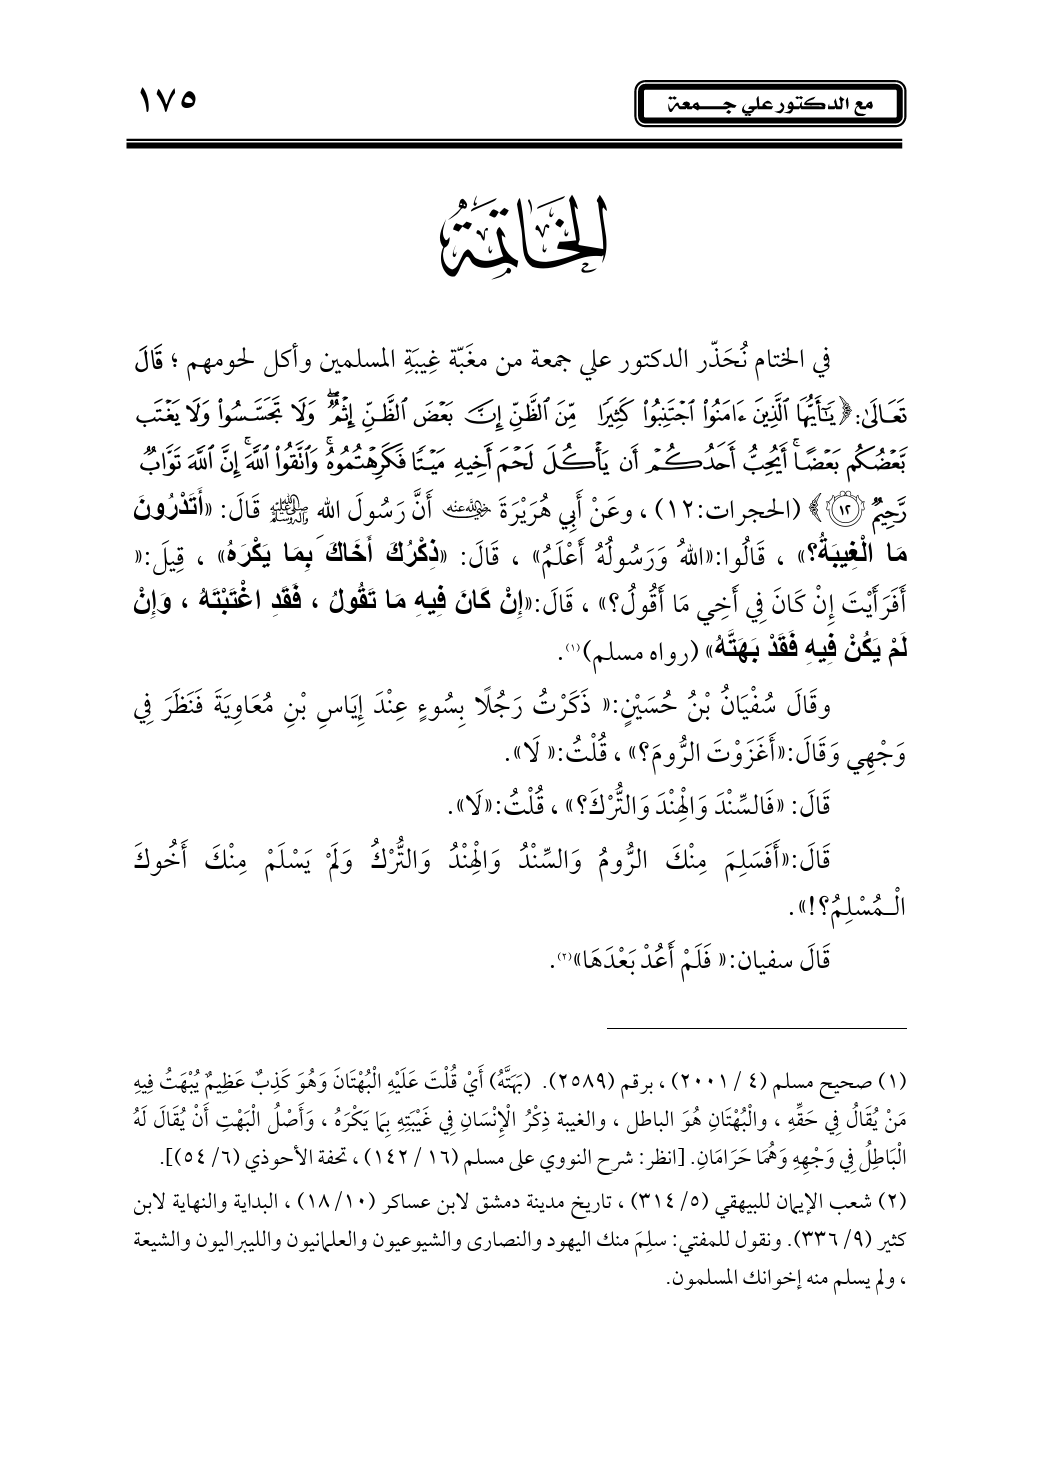 مع الدكتور علي جـــمعة
١٧٥
الخَاتِمَةُ
في الختام نُحَذّر الدكتور علي جمعة من مغَبّة غِيبَةِ المسلمين وأكل لحومهم ؛ قَالَ
تَعَـالَى:﴿ يَـٰٓأَيُّهَا ٱلَّذِينَ ءَامَنُوا۟ ٱجْتَنِبُوا۟ كَثِيرًا مِّنَ ٱلظَّنِّ إِنَّ بَعْضَ ٱلظَّنِّ إِثْمٌ ۖ وَلَا تَجَسَّسُوا۟ وَلَا يَغْتَب
بَّعْضُكُم بَعْضًا ۚ أَيُحِبُّ أَحَدُكُمْ أَن يَأْكُلَ لَحْمَ أَخِيهِ مَيْتًا فَكَرِهْتُمُوهُ ۚ وَٱتَّقُوا۟ ٱللَّهَ ۚ إِنَّ ٱللَّهَ تَوَّابٌ
رَّحِيمٌ ١٢ ﴾ (الحجرات:١٢) ، وعَنْ أَبِي هُرَيْرَةَ رضي الله عنه أَنَّ رَسُولَ اللهِ ﷺ قَالَ: «أَتَدْرُونَ
مَا الْغِيبَةُ؟» ، قَالُوا:«اللهُ وَرَسُولُهُ أَعْلَمُ» ، قَالَ: «ذِكْرُكَ أَخَاكَ بِمَا يَكْرَهُ» ، قِيلَ:«
أَفَرَأَيْتَ إِنْ كَانَ فِي أَخِي مَا أَقُولُ؟» ، قَالَ:«إِنْ كَانَ فِيهِ مَا تَقُولُ ، فَقَدِ اغْتَبْتَهُ ، وَإِنْ
لَمْ يَكُنْ فِيهِ فَقَدْ بَهَتَّهُ» (رواه مسلم)(١).
وقَالَ سُفْيَانُ بْنُ حُسَيْنٍ:« ذَكَرْتُ رَجُلًا بِسُوءٍ عِنْدَ إِيَاسِ بْنِ مُعَاوِيَةَ فَنَظَرَ فِي
وَجْهِي وَقَالَ:«أَغَزَوْتَ الرُّومَ؟» ، قُلْتُ:« لَا».
قَالَ: «فَالسِّنْدَ وَالْهِنْدَ وَالتُّرْكَ؟» ، قُلْتُ:«لَا».
قَالَ:«أَفَسَلِمَ مِنْكَ الرُّومُ وَالسِّنْدُ وَالْهِنْدُ وَالتُّرْكُ وَلَمْ يَسْلَمْ مِنْكَ أَخُوكَ
الْـمُسْلِمُ؟!».
قَالَ سفيان:« فَلَمْ أَعُدْ بَعْدَهَا»(٢).
(١) صحيح مسلم (٤ / ٢٠٠١) ، برقم (٢٥٨٩). (بَهَتَّهُ) أَيْ قُلْتَ عَلَيْهِ الْبُهْتَانَ وَهُوَ كَذِبٌ عَظِيمٌ يُبْهَتُ فِيهِ
مَنْ يُقَالُ فِي حَقِّهِ ، والْبُهْتَانِ هُوَ الباطل ، والغيبة ذِكْرُ الْإِنْسَانِ فِي غَيْبَتِهِ بِمَا يَكْرَهُ ، وَأَصْلُ الْبَهْتِ أَنْ يُقَالَ لَهُ
الْبَاطِلُ فِي وَجْهِهِ وَهُمَا حَرَامَانِ. [انظر: شرح النووي على مسلم (١٦ / ١٤٢) ، تحفة الأحوذي (٦/ ٥٤)].
(٢) شعب الإيمان للبيهقي (٥/ ٣١٤) ، تاريخ مدينة دمشق لابن عساكر (١٠/ ١٨) ، البداية والنهاية لابن
كثير (٩/ ٣٣٦). ونقول للمفتي: سلِمَ منك اليهود والنصارى والشيوعيون والعلمانيون والليبراليون والشيعة
، ولم يسلم منه إخوانك المسلمون.